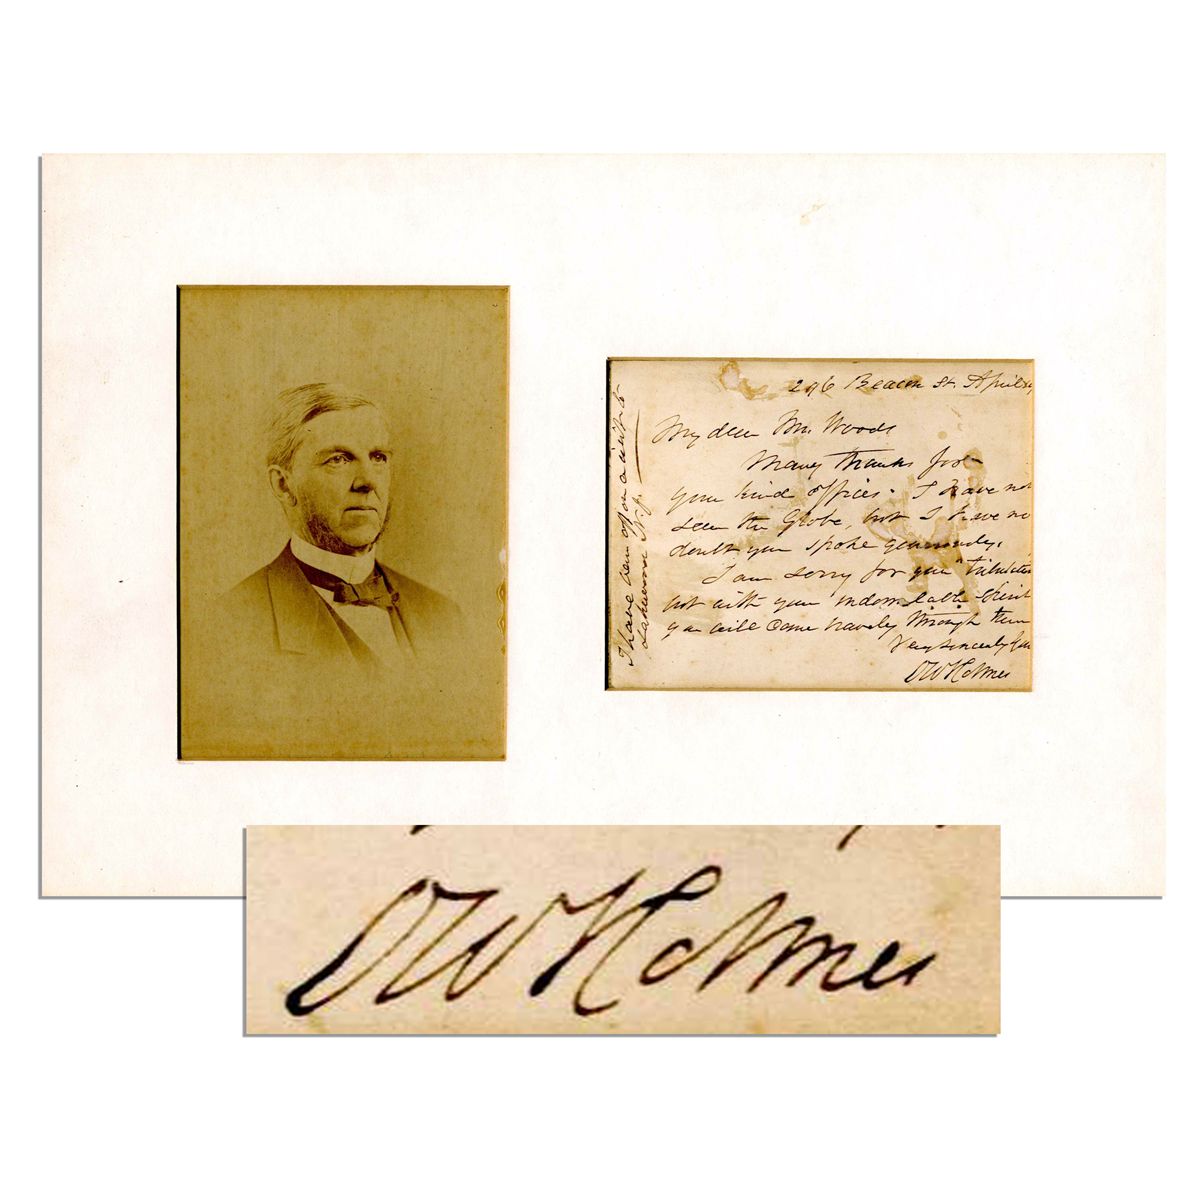 296 Beacon St. April
My dear Mr. Woods
Many thanks for
your kind offices. I have not
seen the Globe, but I have no
doubt you spoke generously.
I am sorry for your "tribulations
but with your indomitable spirit
you will come bravely through them
Very sincerely yours
OWHolmes
I have been off on a visit to
Lakewood N.J.
OWHolmes